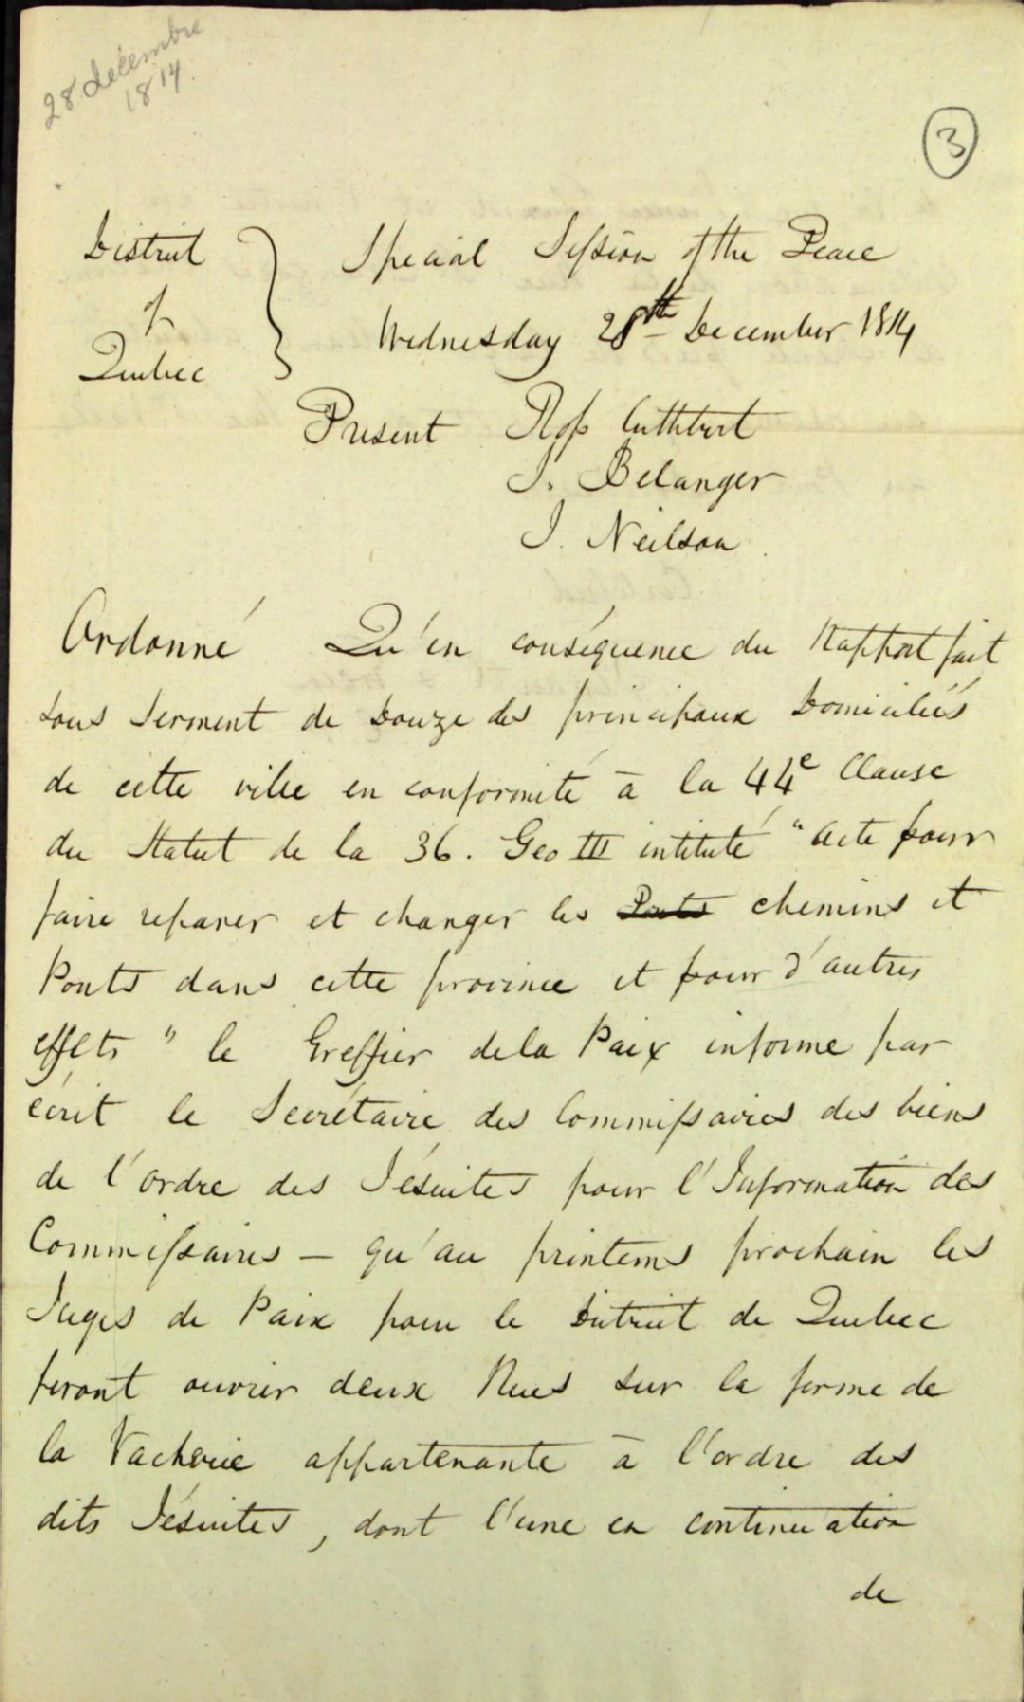 28 decembre
1814.
3
District
of
Quebec
Special Session of the Peace
Wednesday 28th December 1814
Present Ross Cuthbert
J. Belanger
J. Neilson
Ordonné Qu'en conséquence du Rapport fait
sous serment de Douze des principaux Domiciliés
de cette ville en conformité à la 44e Clause
du Statut de la 36. Geo III intitulé "Acte pour
faire reparer et changer les Ponts chemins et
Ponts dans cette province et pour d'autres
effets" le Greffier de la Paix informe par
écrit le Secrétaire des Commissaires des biens
de l'ordre des Jésuites pour l'Information des
Commissaires - qu'au printems prochain les
Juges de Paix pour le District de Quebec
feront ouvrir deux Rues sur la ferme de
la Vacherie appartenante à l'ordre des
dits Jésuites, dont l'une en continuation
de